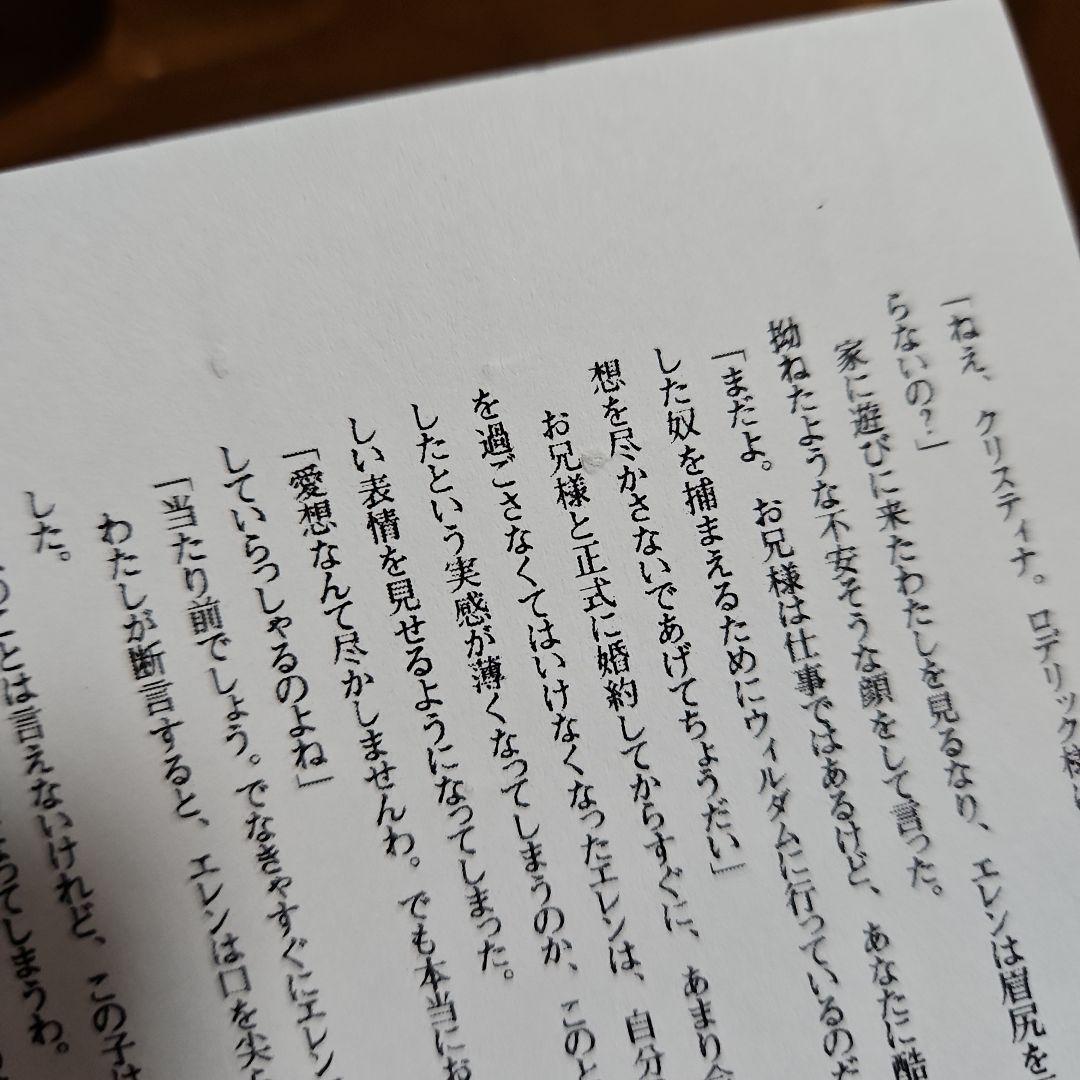 「ねえ、クリスティナ。ロデリック様は
らないの？」
家に遊びに来たわたしを見るなり、エレンは眉尻を
拗ねたような不安そうな顔をして言った。
「まだよ。お兄様は仕事ではあるけど、あなたに酷
した奴を捕まえるためにウィルダムに行っているのだ
想を尽かさないであげてちょうだい」
お兄様と正式に婚約してからすぐに、あまり会
を過ごさなくてはいけなくなったエレンは、自分
したという実感が薄くなってしまうのか、このと
しい表情を見せるようになってしまった。
「愛想なんて尽かしませんわ。でも本当にお
していらっしゃるのよね」
「当たり前でしょう。でなきゃすぐにエレン
わたしが断言すると、エレンは口を尖
した。
ことは言えないけれど、この子は
ってしまうわ。